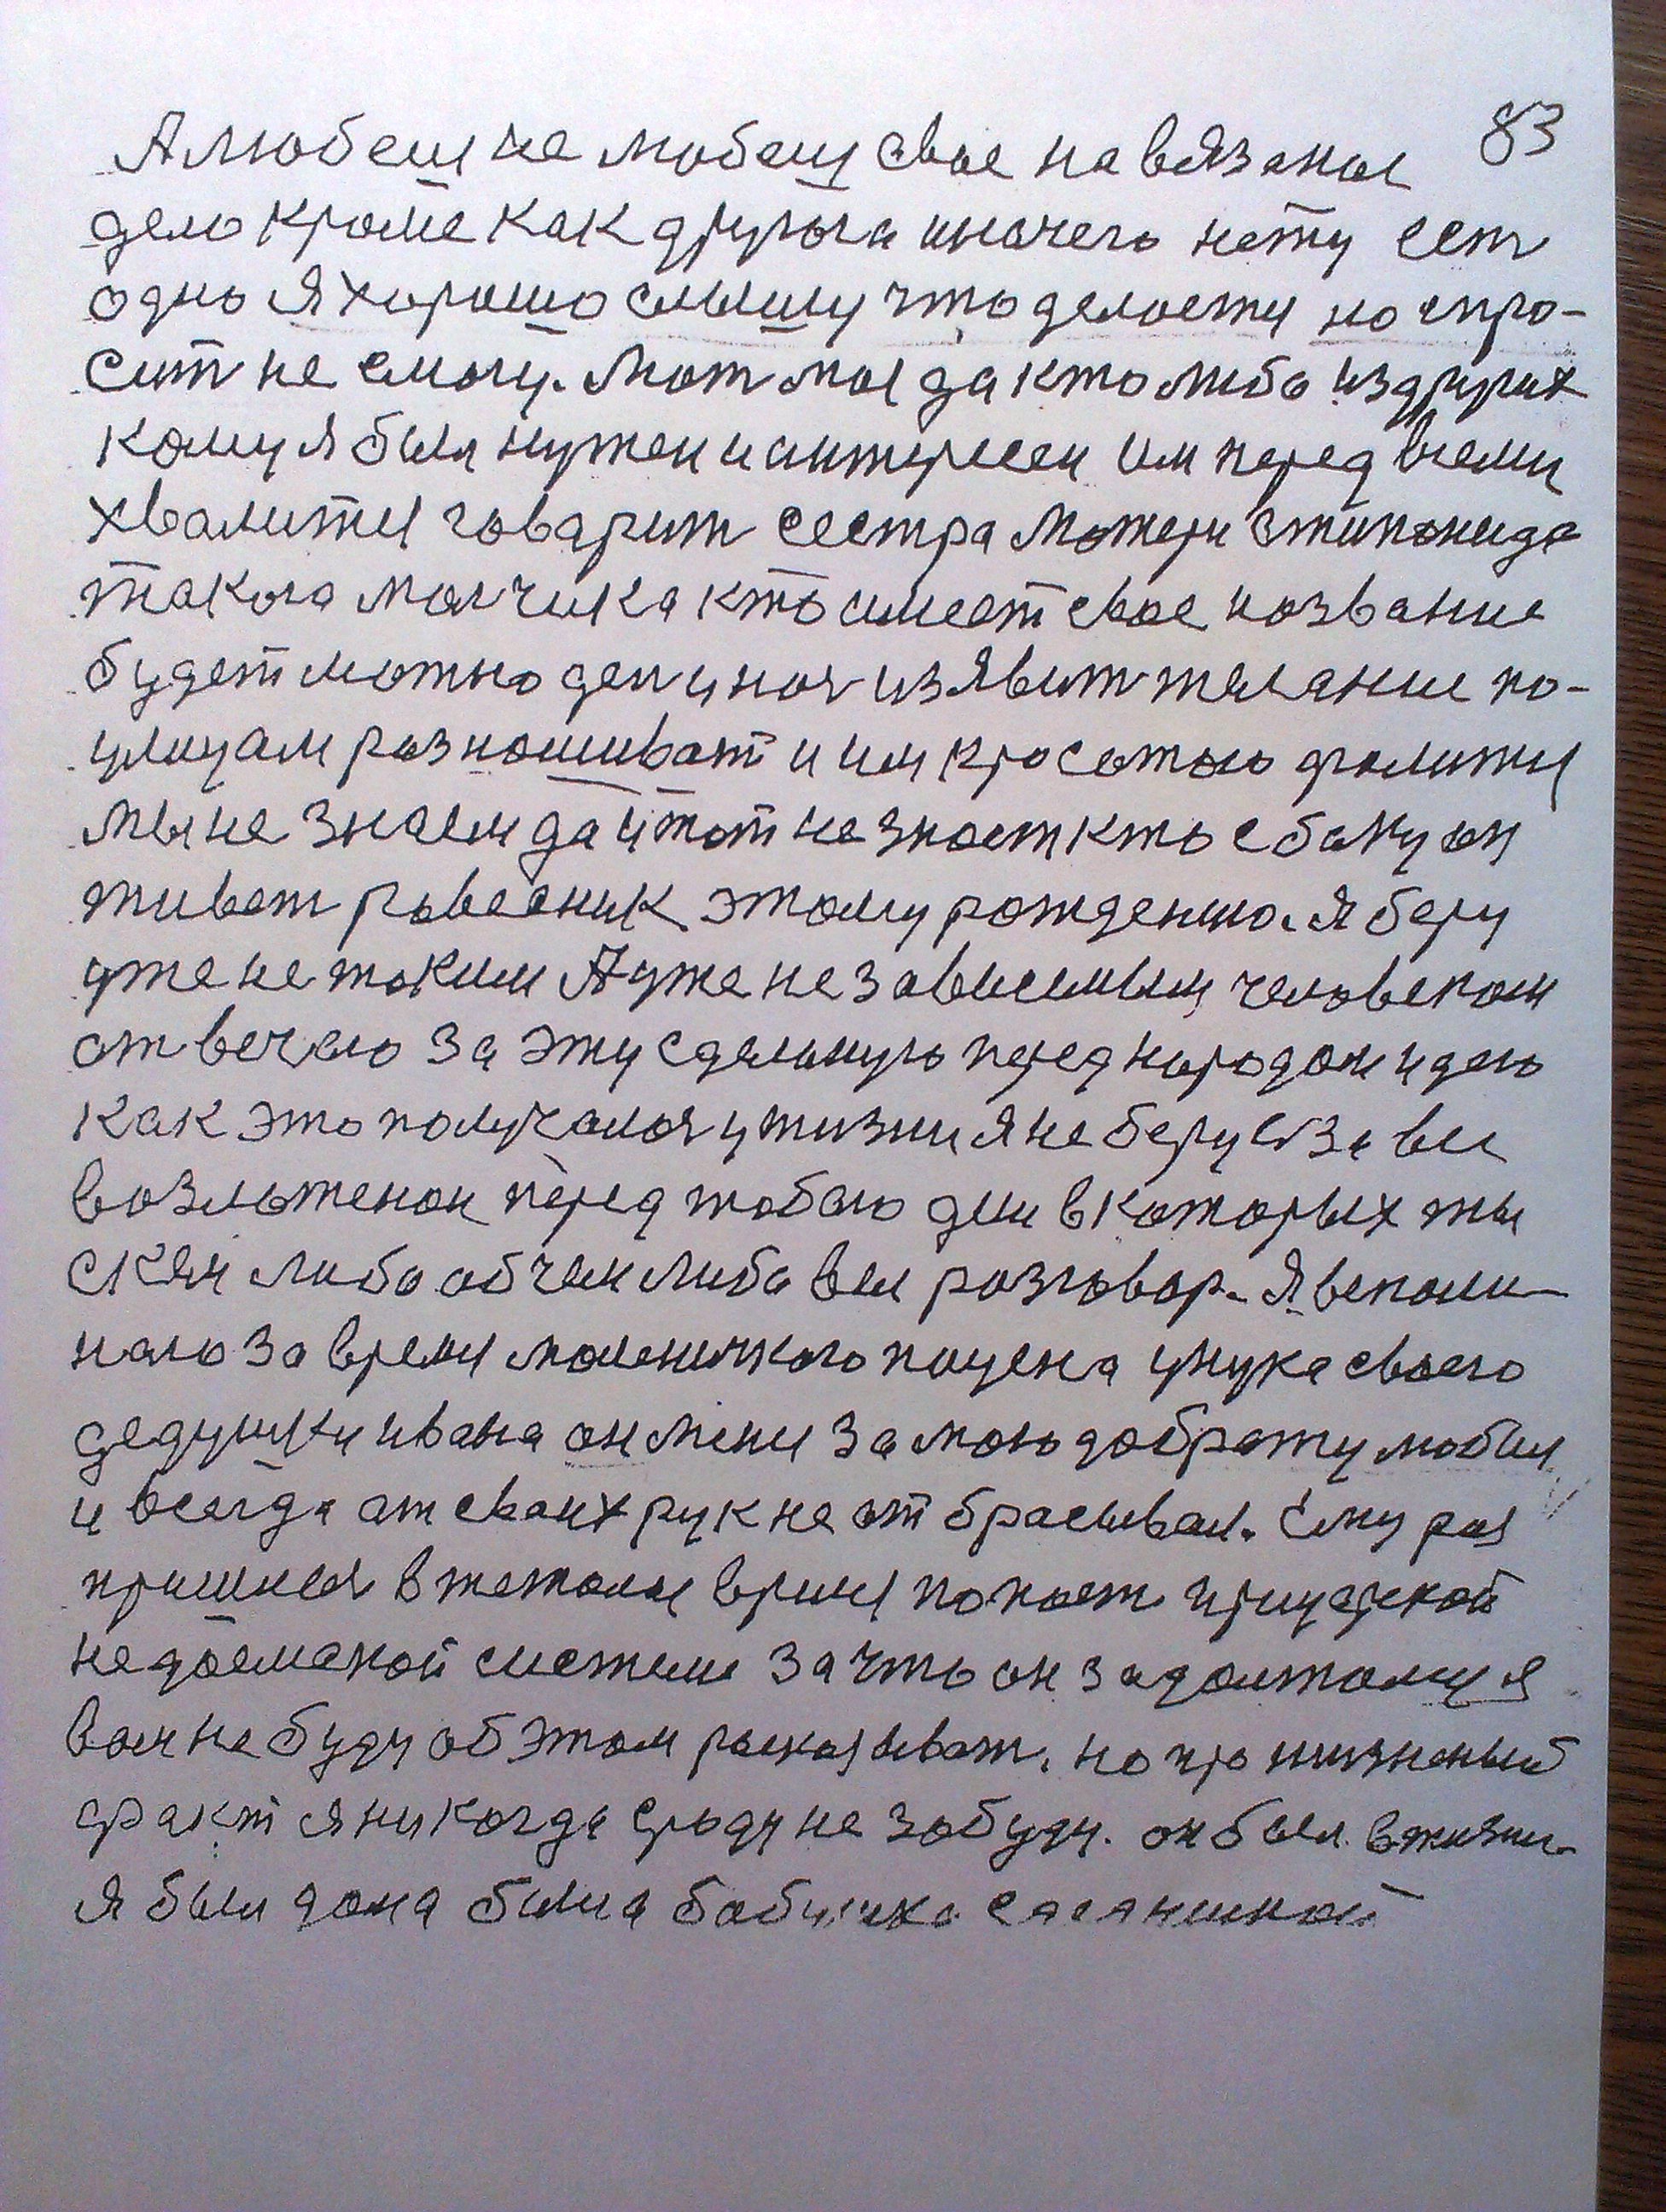 83
А любеш не любеш свое навязаное
дело кроме как другога иначего нету ест
одно я хорошо слышу что делается но спро-
сит не смогу. Мат моя да кто либо из других
кому я был нужен и интересен им перед всеми
хвалится говарит сестра матери
такога малчика кто имеет свое название
будет можно ден и ноч изявит желание по-
улицам разнашиват и им красотою
мы не знаем да и тот не знает кто с баку он
живет ровесник этому рождению. Я беру
уже не таким А уже не зависимым человеком
отвечаю за эту сделаную перед народом идею
как это получался у жизни я не берусь за все
возложеной перед тобою дни в которых ты
с кем либо об чем либа вел разговор. Я вспоми-
наю за время маленичкого пацена унука своего
дедушки ивана он меня за мою доброту любил
и всегда от своих рук не отбрасывал. Ему раз
пришлся в тетолы время попаст
системы за что он
вам не буду об этом расказыват. но про жизненый
факт я никогда сроду не забуду. он был в жизни.
Я был дома была бабушка